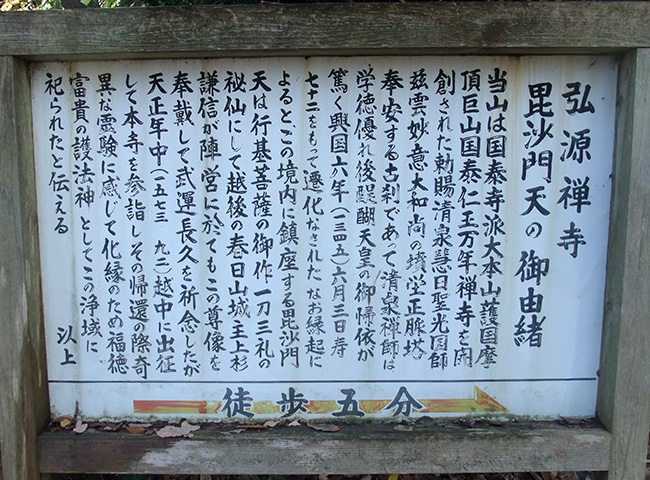 弘源禅寺
毘沙門天の御由緒
当山は国泰寺派大本山護国摩
頂巨山国泰仁王万年禅寺を開
創された勅賜清泉慧日聖光国師
慈雲妙意大和尚の墳堂正脈塔
奉安する古刹であって清泉禅師は
学徳優れ後醍醐天皇の御帰依が
篤く興国六年(一三四五)六月三日寿
七十二をもって遷化なされた なお縁起に
よるとこの境内に鎮座する毘沙門
天は行基菩薩の御作一刀三礼の
祕仙にして越後の春日山城主上杉
謙信が陣営に於てもこの尊像を
奉戴して武運長久を祈念したが
天正年中(一五七三 九二)越中に出征
して本寺を参詣しその帰還の際奇
異な霊験に感じて化縁のため福徳
富貴の護法神としてこの浄域に
祀られたと伝える
以上
徒歩五分